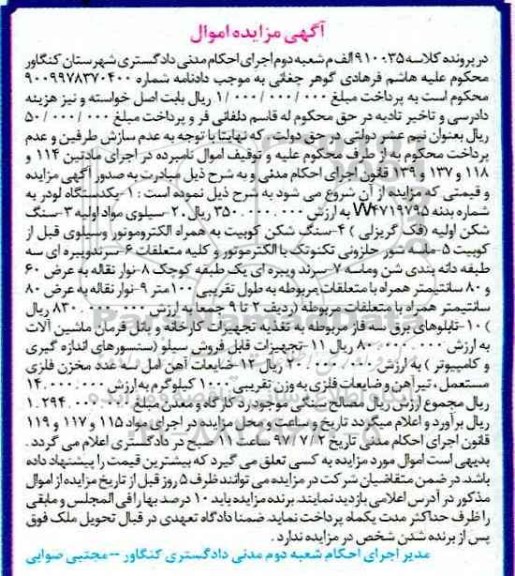 آگهی مزایده اموال
در پرونده کلاسه ۹۱۰۰۳۵ الف م شعبه دوم اجرای احکام مدنی دادگستری شهرستان کنگاور
محکوم علیه هاشم فرهادی گوهر چغائی به موجب دادنامه شماره ۹۰۰۹۹۷۸۳۷۰۴۰۰
محکوم است به پرداخت مبلغ ۱/۰۰۰/۰۰۰/۰۰۰ ریال بابت اصل خواسته و نیز هزینه
دادرسی و تاخیر تادیه در حق محکوم له قاسم دلفانی فر و پرداخت مبلغ ۵۰/۰۰۰/۰۰۰
ریال بعنوان نیم عشر دولتی در حق دولت که نهایتا با توجه به عدم سازش طرفین و عدم
پرداخت محکوم به از طرف محکوم علیه و توقیف اموال نامبرده در اجرای مادتین ۱۱۴ و
۱۱۸ و ۱۳۷ و ۱۳۹ قانون اجرای احکام مدنی و به شرح ذیل مبادرت به صدور آگهی مزایده
و قیمتی که مزایده از آن شروع می شود به شرح ذیل نموده است : ۱-یکدستگاه لودر به
شماره بدنه W۴۷۱۹۷۹۵ به ارزش ۳۵۰.۰۰۰.۰۰۰ ریال ۲-سیلوی مواد اولیه ۳-سنگ
شکن اولیه (فک گریزلی ) ۴-سنگ شکن کوبیت به همراه الکتروموتور وسیلوی قبل از
کوبیت ۵-ماسه شور حلزونی تکنوتک با الکتروموتور و کلیه متعلقات ۶-سرندویبره ای سه
طبقه دانه بندی شن وماسه ۷-سرند ویبره ای یک طبقه کوچک ۸-نوار نقاله به عرض ۶۰
و ۸۰ سانتیمتر همراه با متعلقات مربوطه به طول تقریبی ۱۰۰ متر ۹-نوار نقاله به عرض ۸۰
سانتیمتر همراه با متعلقات مربوطه (ردیف ۲ تا ۹ جمعا به ارزش ۸۳۰.۰۰۰.۰۰۰ ریال
) ۱۰-تابلوهای برق سه فاز مربوطه به تغذیه تجهیزات کارخانه و پانل فرمان ماشین آلات
به ارزش ۸۰.۰۰۰.۰۰۰ ریال ۱۱-تجهیزات قابل فروش سیلو (سنسورهای اندازه گیری
و کامپیوتر ) به ارزش ۲۰.۰۰۰.۰۰۰ ریال ۱۲-ضایعات آهن امل سه عدد مخزن فلزی
مستعمل ، تیرآهن و ضایعات فلزی به وزن تقریبی ۱۰۰۰ کیلوگرم به ارزش ۱۴.۰۰۰.۰۰۰
ریال مجموع ارزش ریال مصالح سنگی موجود در کارگاه و معدن مبلغ ۱.۲۹۴.۰۰۰.۰۰۰
ریال برآورد و اعلام میگردد تاریخ و ساعت و محل مزایده در اجرای مواد ۱۱۵ و ۱۱۷ و ۱۱۹
قانون اجرای احکام مدنی تاریخ ۹۷/۷/۲ ساعت ۱۱ صبح در دادگستری اعلام می گردد .
بدیهی است اموال مورد مزایده به کسی تعلق می گیرد که بیشترین قیمت را پیشنهاد داده
باشد. در ضمن متقاضیان شرکت در مزایده می توانند ظرف ۵ روز قبل از تاریخ مزایده از اموال
مذکور در آدرس اعلامی بازدید نمایند. برنده مزایده باید ۱۰ درصد بها را فی المجلس و مابقی
را ظرف حداکثر مدت یکماه پرداخت نماید. ضمنا دادگاه تعهدی در قبال تحویل ملک فوق
پس از برنده شدن شخص در مزایده ندارد .
مدیر اجرای احکام شعبه دوم مدنی دادگستری کنگاور --مجتبی صوابی